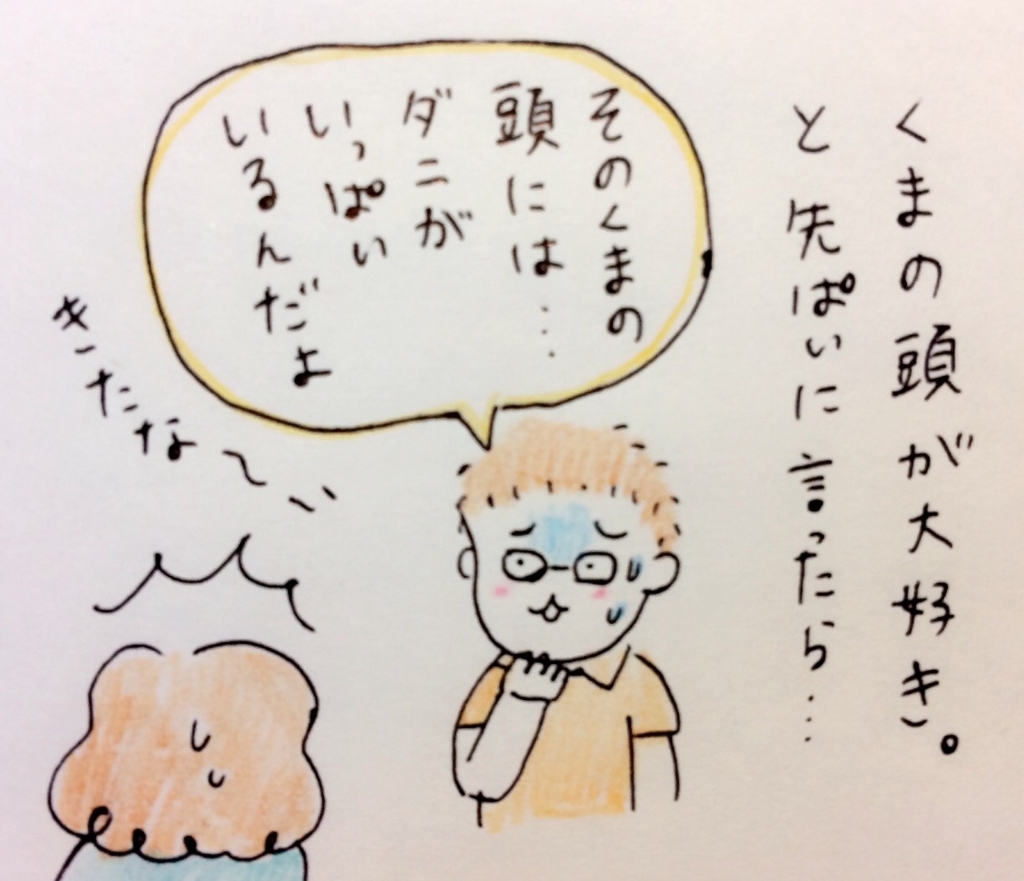 くまの頭が大好き。
と先ぱいに言ったら…
そのくまの
頭には…
ダニが
いっぱい
いるんだよ
きたな〜い